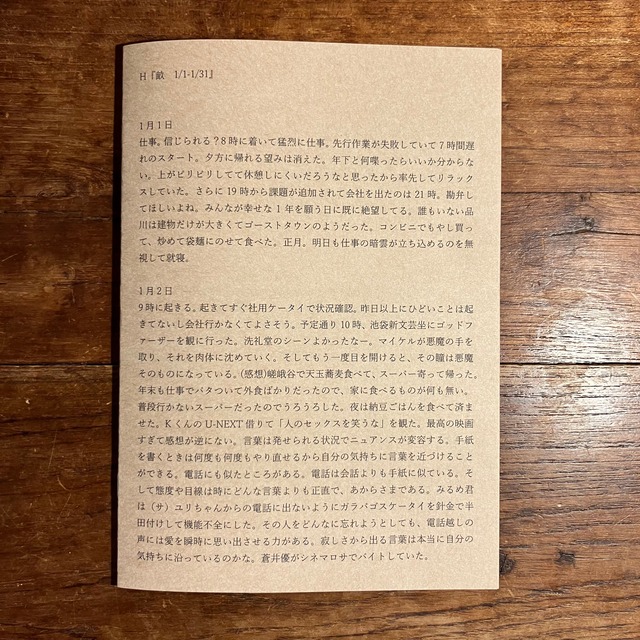 H『畝　1/1-1/31』
1月1日
仕事。信じられる？8時に着いて猛烈に仕事。先行作業が失敗していて7時間遅
れのスタート。夕方に帰れる望みは消えた。年下と何喋ったらいいか分からな
い。上がピリピリしてて休憩しにくいだろうなと思ったから率先してリラック
スしていた。さらに19時から課題が追加されて会社を出たのは21時。勘弁し
てほしいよね。みんなが幸せな1年を願う日に既に絶望してる。誰もいない品
川は建物だけが大きくてゴーストタウンのようだった。コンビニでもやし買っ
て、炒めて袋麺にのせて食べた。正月。明日も仕事の暗雲が立ち込めるのを無
視して就寝。
1月2日
9時に起きる。起きてすぐ社用ケータイで状況確認。昨日以上にひどいことは起
きてないし会社行かなくてよさそう。予定通り10時、池袋新文芸坐にゴッドフ
ァーザーを観に行った。洗礼堂のシーンよかったなー。マイケルが悪魔の手を
取り、それを肉体に沈めていく。そしてもう一度目を開けると、その瞳は悪魔
そのものになっている。(感想)嵯峨谷で天玉蕎麦食べて、スーパー寄って帰った。
年末も仕事でバタついて外食ばかりだったので、家に食べるものが何も無い。
普段行かないスーパーだったのでうろうろした。夜は納豆ごはんを食べて済ま
せた。KくんのU-NEXT借りて「人のセックスを笑うな」を観た。最高の映画
すぎて感想が逆にない。言葉は発せられる状況でニュアンスが変容する。手紙
を書くときは何度も何度もやり直せるから自分の気持ちに言葉を近づけること
ができる。電話にも似たところがある。電話は会話よりも手紙に似ている。そ
して態度や目線は時にどんな言葉よりも正直で、あからさまである。みるめ君
は（サ）ユリちゃんからの電話に出ないようにガラパゴスケータイを針金で半
田付けして機能不全にした。その人をどんなに忘れようとしても、電話越しの
声には愛を瞬時に思い出させる力がある。寂しさから出る言葉は本当に自分の
気持ちに沿っているのかな。蒼井優がシネマロサでバイトしていた。